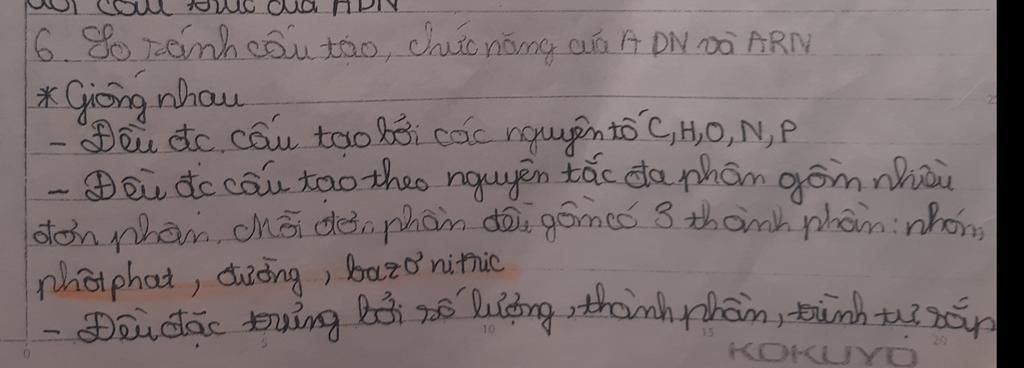 cấu trúc của ADN
6. So sánh cấu tạo, chức năng của ADN và ARN
* Giống nhau
- Đều đc cấu tạo bởi các nguyên tố C, H, O, N, P
- Đều đc cấu tạo theo nguyên tắc đa phân gồm nhiều
đơn phân. Mỗi đơn phân đều gồm có 3 thành phần: nhóm
phôtphat, đường, bazơ nitric
- Đều đặc trưng bởi số lượng, thành phần, trình tự sắp
0 5 10 15 20
KOKUYO